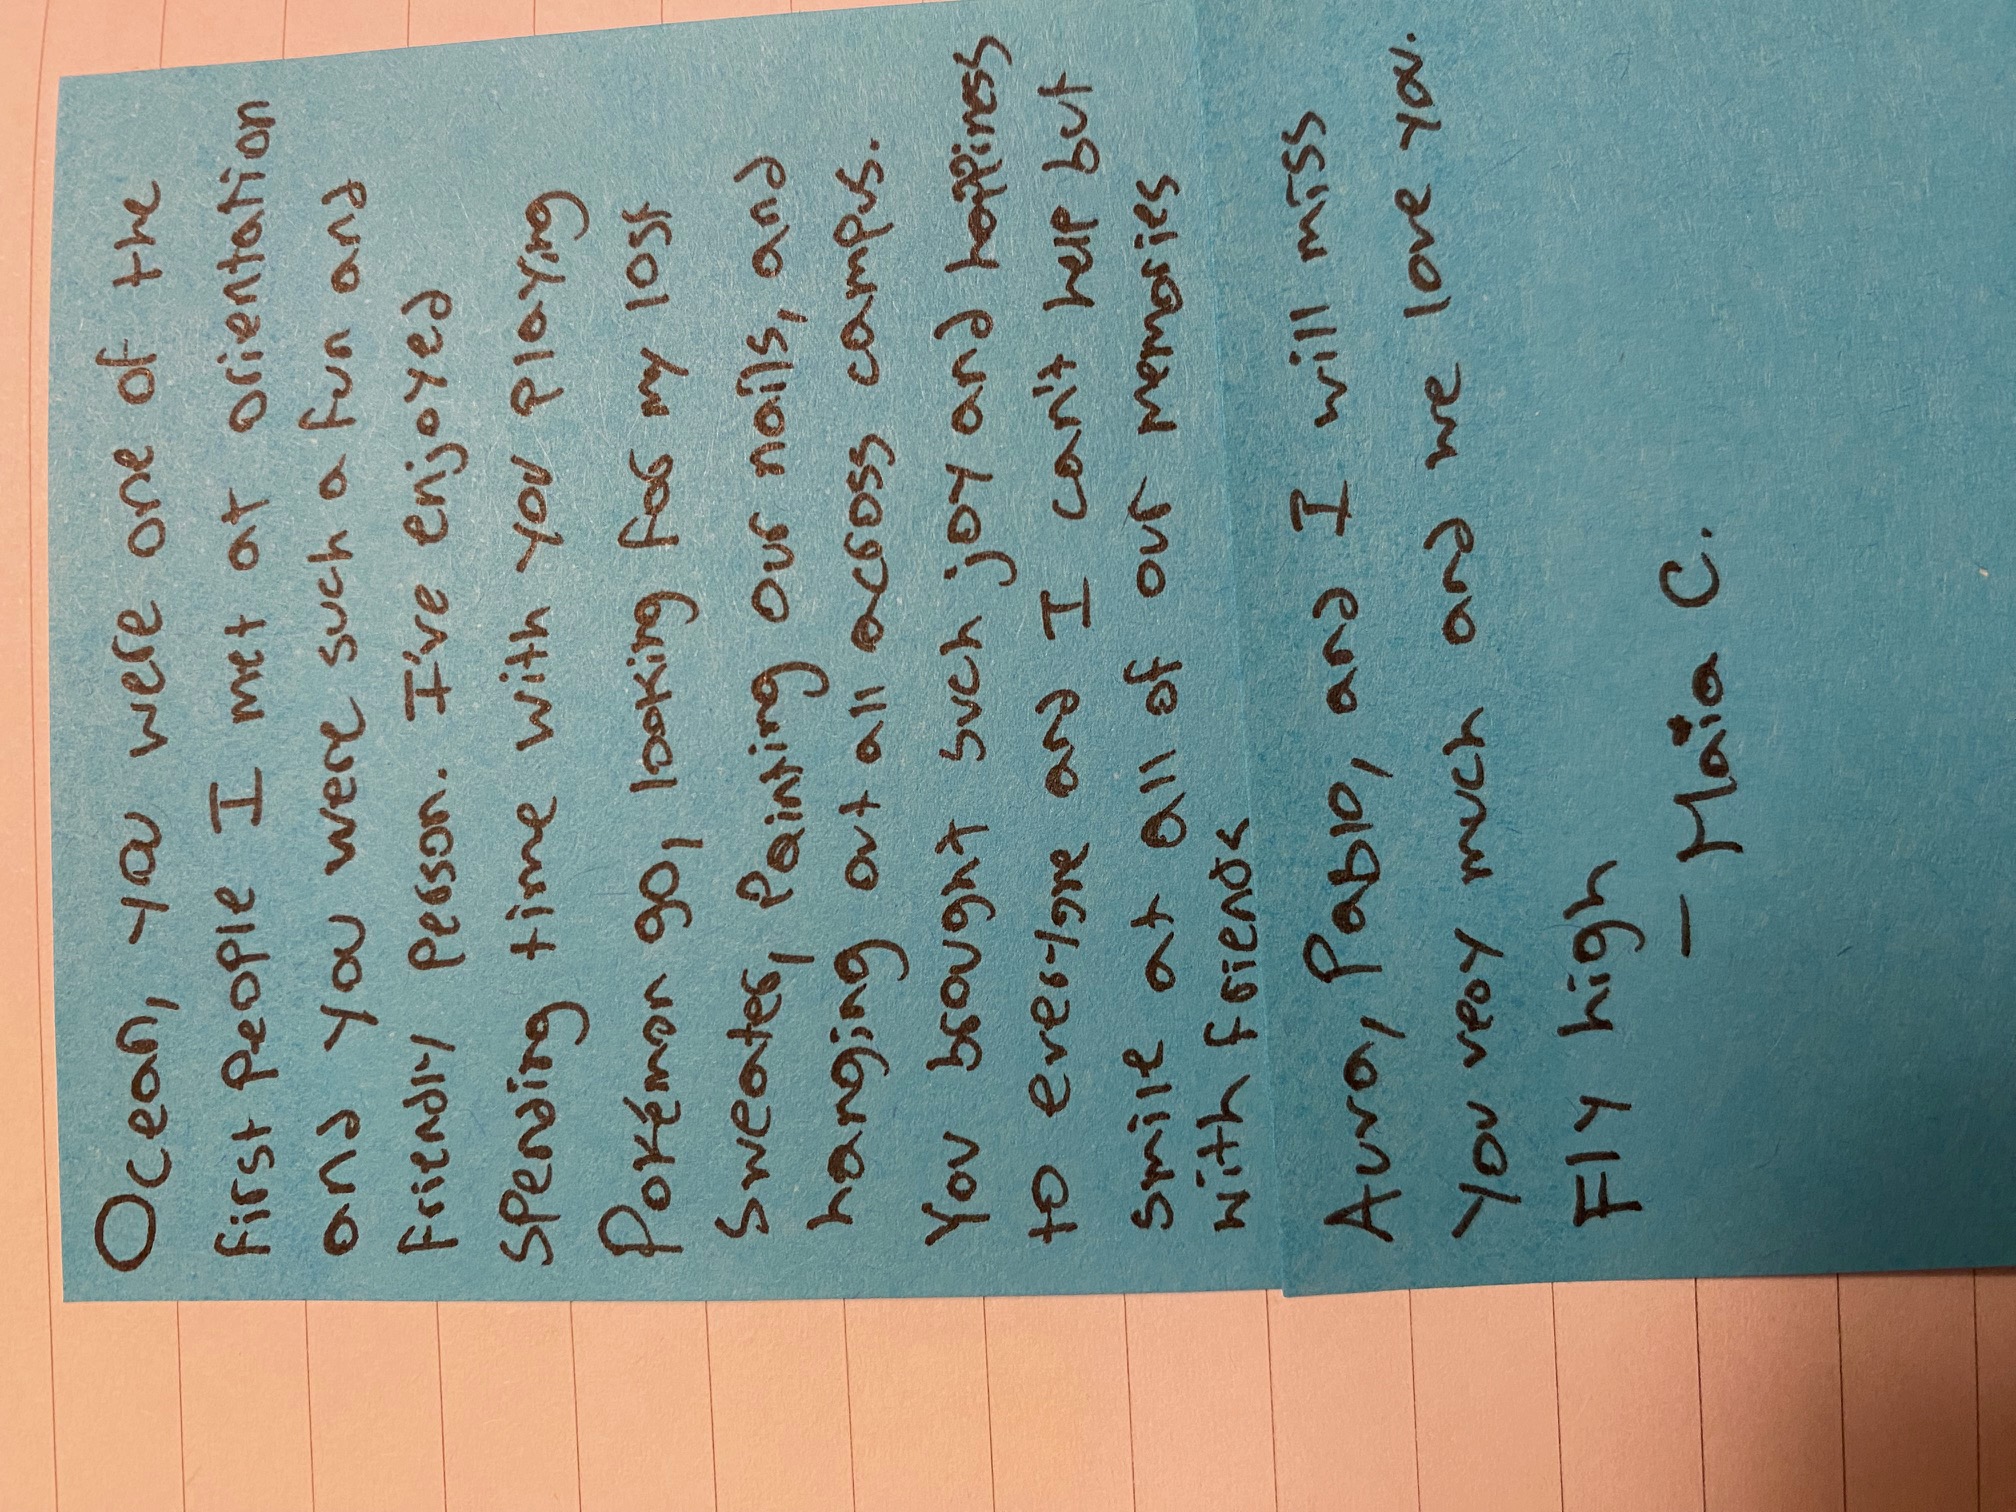 Ocean, you were one of the
first people I met at orientation
and you were such a fun and
friendly person. I've enjoyed
spending time with you playing
Pokémon go, looking for my lost
sweater, painting our nails, and
hanging out all across campus.
You brought such joy and happiness
to everyone and I can't help but
smile at all of our memories
with friends
Aura, Pablo, and I will miss
you very much and we love you.
Fly high
- Maia C.